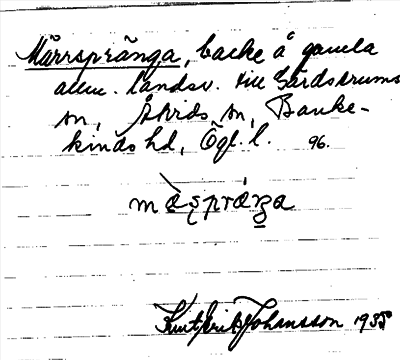 Märrspränga, backe å gamla
allm. landsv. till Gärdserums
sn, Åtvids sn, Banke-
kinds hd, Ögl. l. 96.
Kurt Erik Johansson 1935